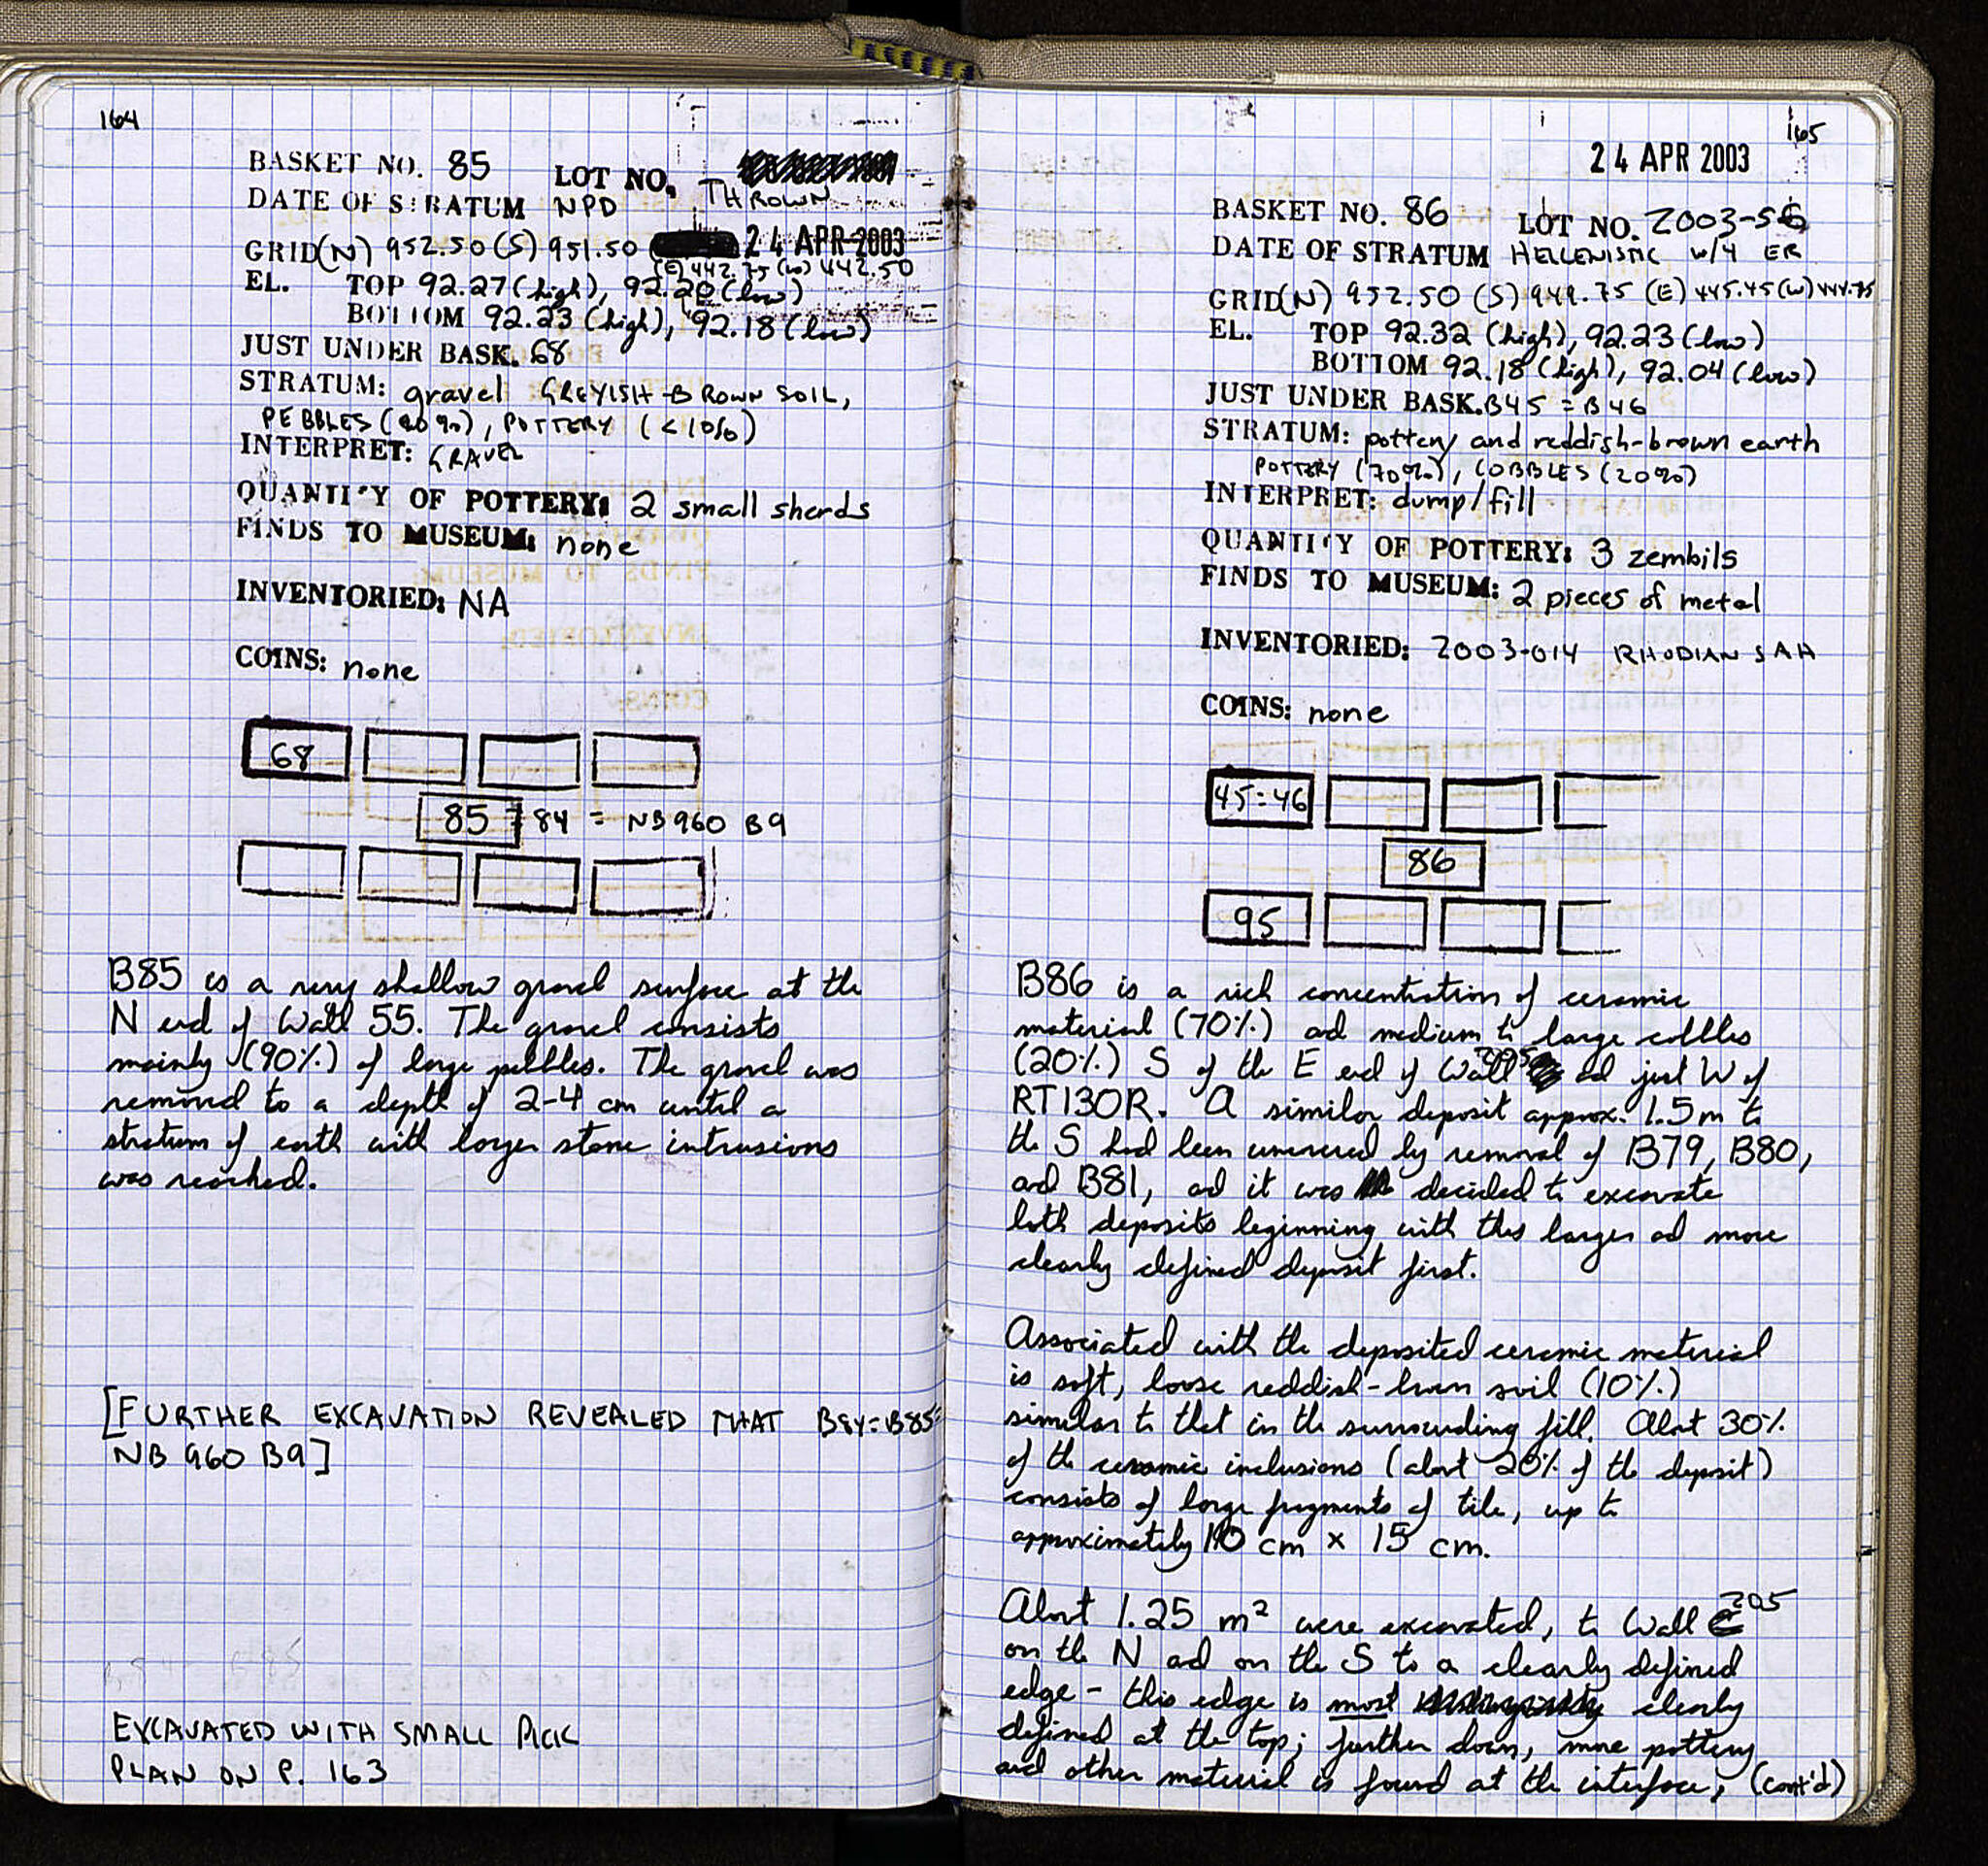 164
BASKET NO. 85 LOT NO. THROWN
DATE OF STRATUM NPD
GRID(N) 952.50 (S) 951.50 24 APR 2003
(E) 442.75 (W) 442.50
EL. TOP 92.27 (high), 92.20 (low)
BOTTOM 92.23 (high), 92.18 (low)
JUST UNDER BASK. 68
STRATUM: gravel GREYISH-BROWN SOIL,
PEBBLES (90%), POTTERY (<10%)
INTERPRET: GRAVEL
QUANTITY OF POTTERY: 2 small sherds
FINDS TO MUSEUM: none
INVENTORIED: NA
COINS: none
68
85 = 84 = NB960 B9
B85 is a very shallow gravel surface at the
N end of Wall 55. The gravel consists
mainly (90%) of large pebbles. The gravel was
removed to a depth of 2-4 cm until a
stratum of earth with larger stone intrusions
was reached.
[FURTHER EXCAVATION REVEALED THAT B84=B85=
NB 960 B9]
EXCAVATED WITH SMALL PICK
PLAN ON P. 163
165
24 APR 2003
BASKET NO. 86 LOT NO. 2003-56
DATE OF STRATUM HELLENISTIC w/4 ER
GRID(N) 952.50 (S) 949.75 (E) 445.45 (W) 444.75
EL. TOP 92.32 (high), 92.23 (low)
BOTTOM 92.18 (high), 92.04 (low)
JUST UNDER BASK. B45 = B46
STRATUM: pottery and reddish-brown earth
POTTERY (70%), COBBLES (20%)
INTERPRET: dump/fill
QUANTITY OF POTTERY: 3 zembils
FINDS TO MUSEUM: 2 pieces of metal
INVENTORIED: 2003-014 RHODIAN SAH
COINS: none
45=46
86
95
B86 is a rich concentration of ceramic
material (70%) and medium to large cobbles
(20%) S of the E end of Wall 205 and just W of
RT130R. A similar deposit approx. 1.5m to
the S had been uncovered by removal of B79, B80,
and B81, and it was decided to excavate
both deposits beginning with this larger and more
clearly defined deposit first.
Associated with the deposited ceramic material
is soft, loose reddish-brown soil (10%)
similar to that in the surrounding fill. About 30%
of the ceramic inclusions (about 20% of the deposit)
consists of large fragments of tile, up to
approximately 10 cm × 15 cm.
About 1.25 m² were excavated, to Wall 205
on the N and on the S to a clearly defined
edge - this edge is most clearly
defined at the top; further down, more pottery
and other material is found at the interface, (cont'd)